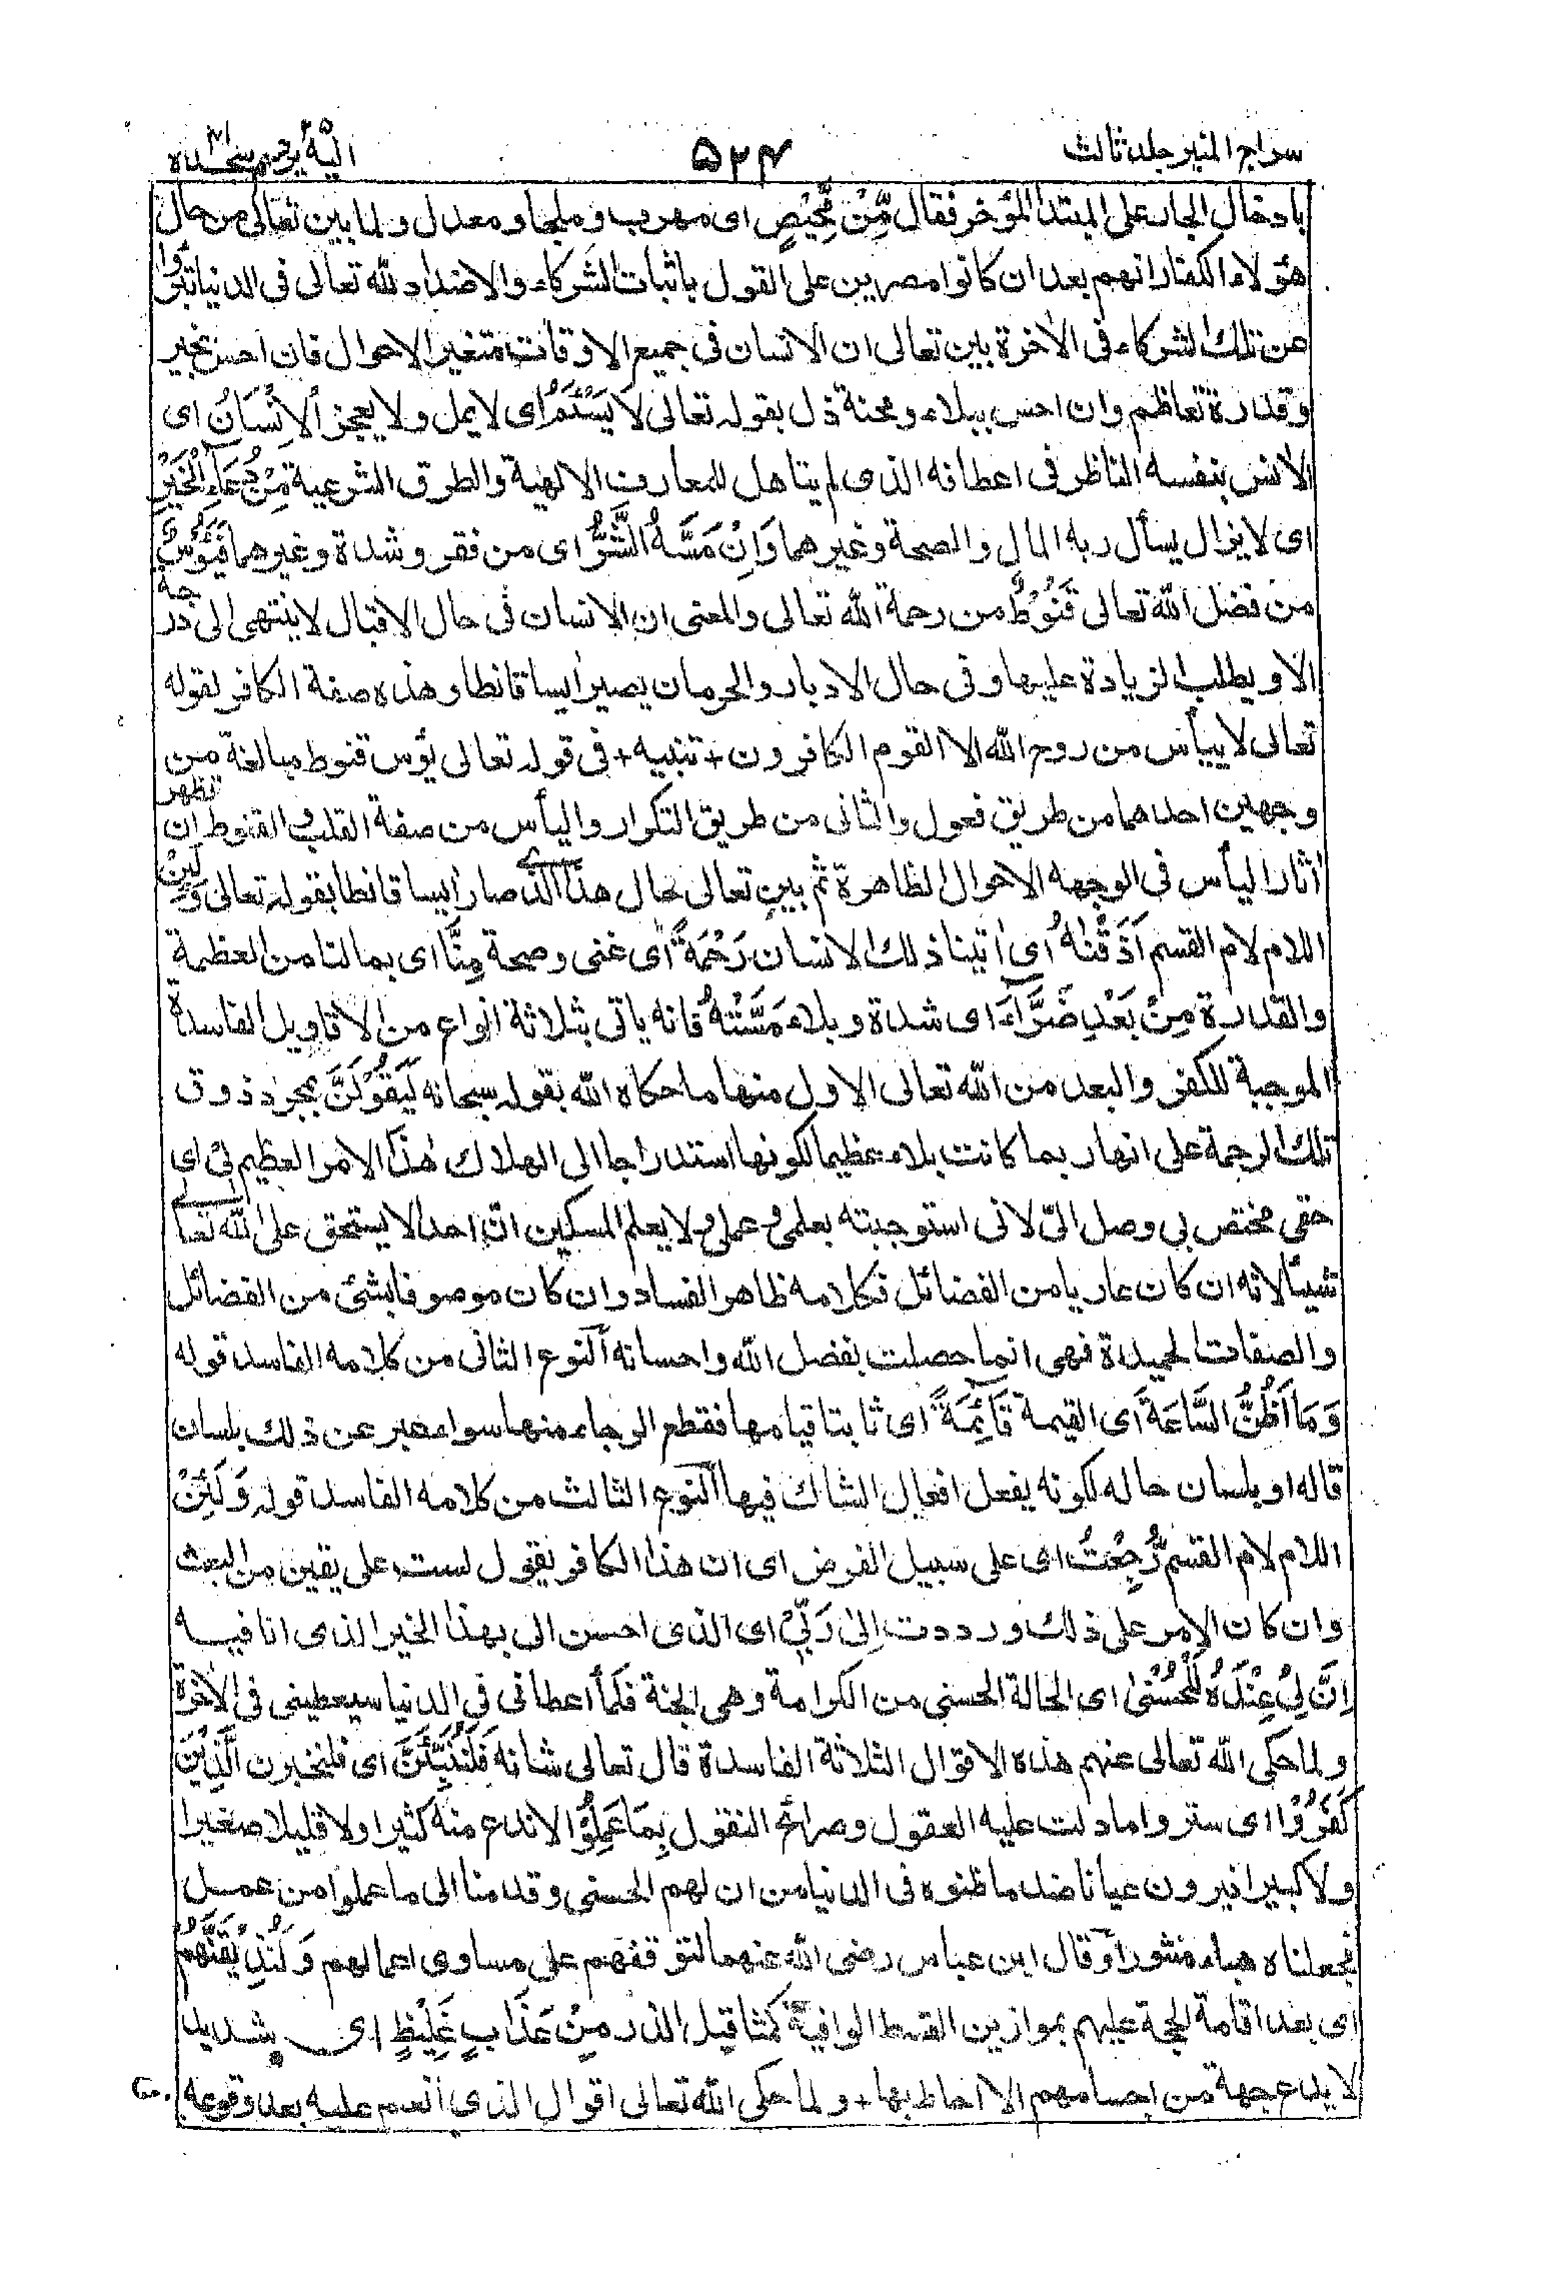 سراج المنير جلد ثالث ۵۲۴ اليه يرد ٢٥ حم سجده ٤١
بادخال الجار على المبتدا المؤخر فقال مِّنْ مَّحِيْصٍ اى مهرب وملجا ومعدل ولما بين تعالى من حال
هؤلاء الكفار انهم بعد ان كانوا مصرين على القول باثبات الشركاء والاضداد لله تعالى فى الدنيا تبرؤا
عن تلك الشركاء فى الاخرة بين تعالى ان الانسان فى جميع الاوقات متغير الاحوال فان احس بخير
وقدرة تعاظم وان احس ببلاء ومحنة ذل بقوله تعالى لَا يَسْـَٔمُ اى لا يمل ولا يعجز الْاِنْسَانُ اى
الانس بنفسه الناظر فى اعطافه الذى لم يتاهل للمعارف الالهية والطرق الشرعية مِنْ دُعَآءِ الْخَيْرِ
اى لا يزال يسأل ربه المال والصحة وغيرهما وَاِنْ مَّسَّهُ الشَّرُّ اى من فقر وشدة وغيرهما فَيَـُٔوْسٌ
من فضل الله تعالى قَنُوْطٌ من رحمة الله تعالى والمعنى ان الانسان فى حال الاقبال لا ينتهى الى درجة
الا ويطلب الزيادة عليها وفى حال الادبار والحرمان يصير ايسا قانطا وهذه صفة الكافر لقوله
تعالى لا ييأس من روح الله الا القوم الكافرون + تنبيه + فى قوله تعالى يؤس قنوط مبالغة من
وجهين احدهما من طريق فعول والثانى من طريق التكرار واليأس من صفة القلب والقنوط ان تظهر
اثار اليأس فى الوجه الاحوال الظاهرة ثم بين تعالى حال هذا الذى صار ايسا قانطا بقوله تعالى وَلَئِنْ
اللام لام القسم اَذَقْنٰهُ اى اتينا ذلك الانسان رَحْمَةً اى غنى وصحة مِنَّا اى بما لنا من العظمة
والقدرة مِنْ بَعْدِ ضَرَّآءَ اى شدة وبلاء مَسَّتْهُ فانه ياتى بثلاثة انواع من الاقاويل الفاسدة
الموجبة للكفر والبعد من الله تعالى الاول منها ما حكاه الله بقوله سبحانه لَيَقُوْلَنَّ بمجرد ذوق
تلك الرحمة على انها ربما كانت بلاء عظيما لكونها استدراجا الى الهلاك هٰذَا الامر العظيم لِيْ اى
حقى مختص بى وصل الىّ لانى استوجبته بعلمى وعملى ولا يعلم المسكين ان احدا لا يستحق على الله تعالى
شيئا لانه ان كان عاريا من الفضائل فكلامه ظاهر الفساد وان كان موصوفا بشئ من الفضائل
والصفات الحميدة فهى انما حصلت بفضل الله واحسانه النوع الثانى من كلامه الفاسد قوله
وَمَآ اَظُنُّ السَّاعَةَ اى القيمة قَآئِمَةً اى ثابتا قيامها فقطع الرجاء منها سواء عبر عن ذلك بلسان
قاله او بلسان حاله لكونه يفعل افعال الشاك فيها النوع الثالث من كلامه الفاسد قوله وَلَئِنْ
اللام لام القسم رُّجِعْتُ اى على سبيل الفرض اى ان هذا الكافر يقول لست على يقين من البعث
وان كان الامر على ذلك ورددت اِلٰى رَبِّيْ اى الذى احسن الى بهذا الخير الذى انا فيه
اِنَّ لِيْ عِنْدَهٗ لَلْحُسْنٰى اى الحالة الحسنى من الكرامة وهى الجنة فكما اعطانى فى الدنيا سيعطينى فى الاخرة
ولما حكى الله تعالى عنهم هذه الاقوال الثلاثة الفاسدة قال تعالى شانه فَلَنُنَبِّئَنَّ اى فلنخبرن الَّذِيْنَ
كَفَرُوْا اى ستروا ما دلت عليه العقول وصرائح النقول بِمَا عَمِلُوْا لا ندع منه كثيرا ولا قليلا صغيرا
ولا كبيرا فيرون عيانا ضد ما ظنوه فى الدنيا من ان لهم الحسنى وقدمنا الى ما عملوا من عمل
فجعلناه هباء منثورا وقال ابن عباس رضى الله عنهما لنوقفهم على مساوى اعمالهم وَلَنُذِيْقَنَّهُمْ
اى بعد اقامة الحجة عليهم بموازين القسط الوافية كمثاقيل الذر مِنْ عَذَابٍ غَلِيْظٍ اى شديد
لا يدع جهة من اجسامهم الا احاط بها + ولما حكى الله تعالى اقوال الذى انعم عليه بعد وقوعه